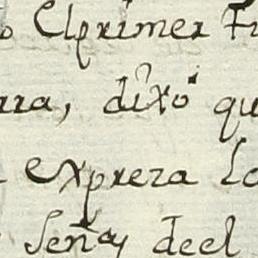 o Elprimer Fu
rra, dixo qu
expreza Lo
Señas deel